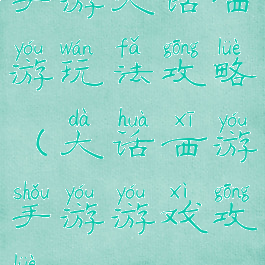 手游大话西
yóu wán fǎ gōng lüè
游玩法攻略
dà huà xī yóu
(大话西游
shǒu yóu yóu xì gōng
手游游戏攻
lüè